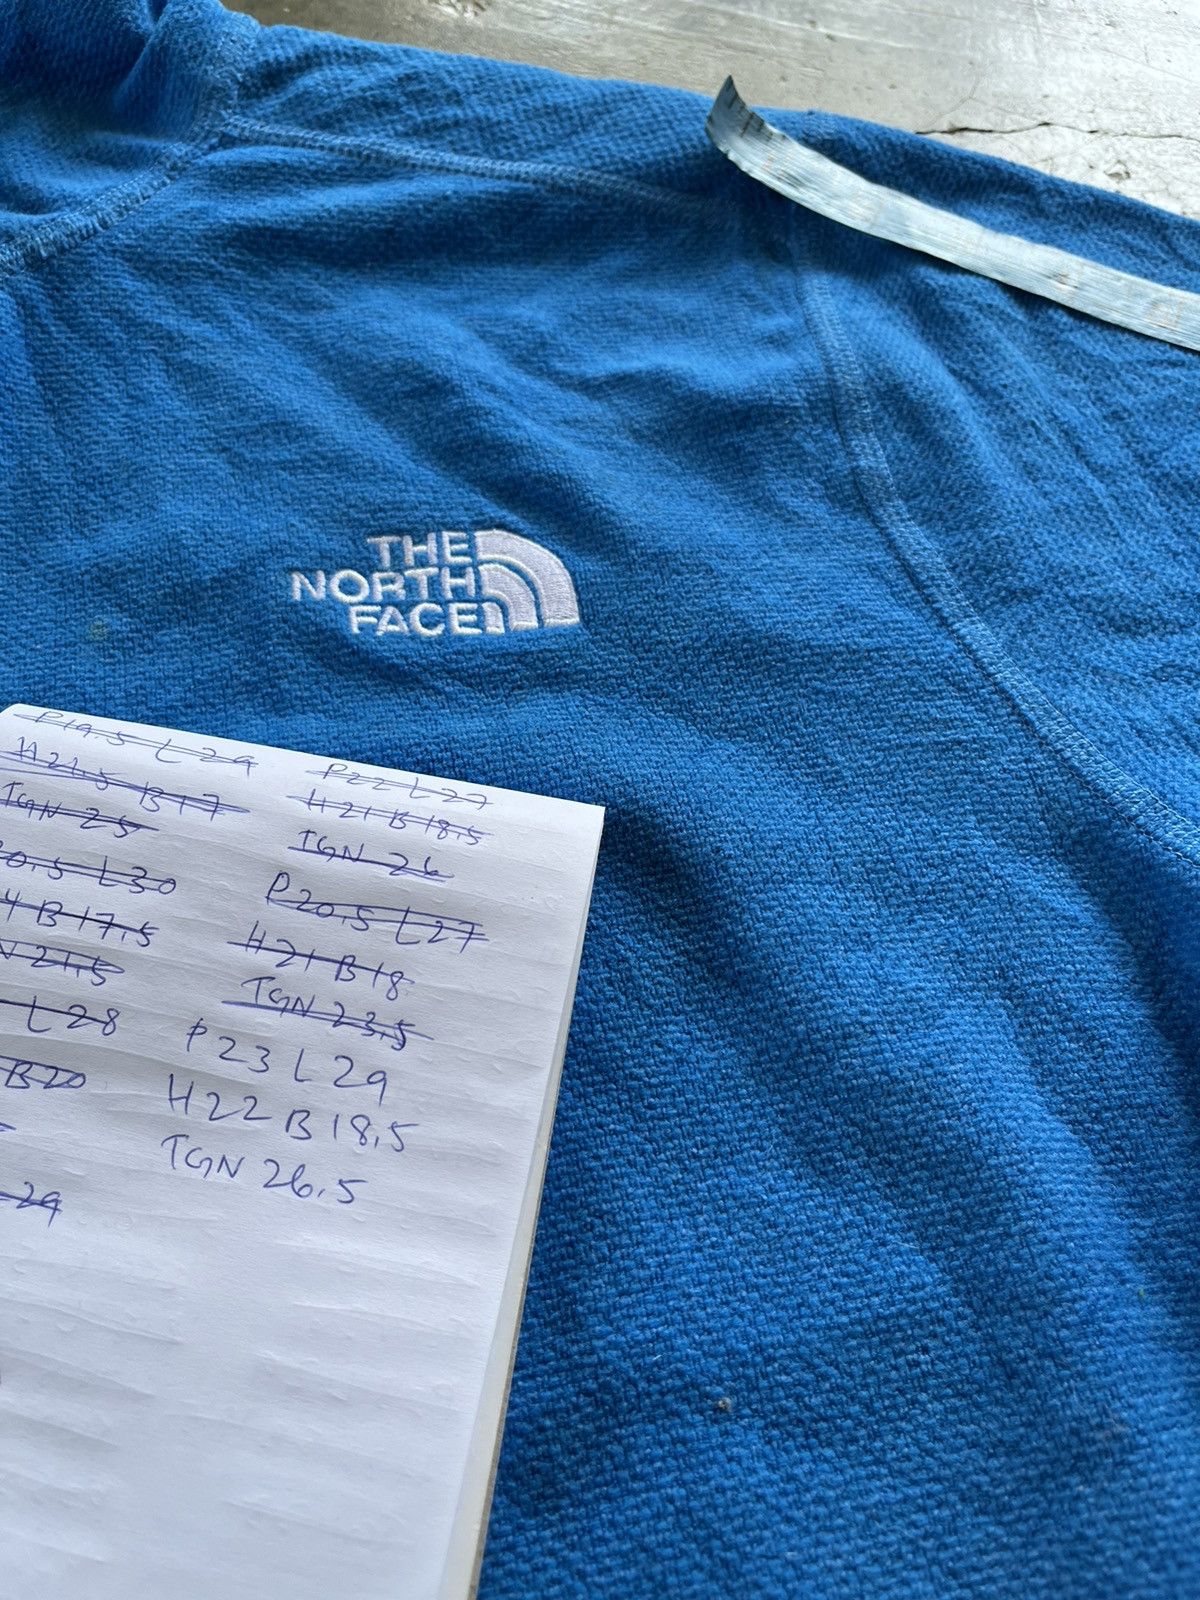 THE
NORTH
FACE
P19.5 L29
H21.5 B17
TGN 25
0.5 L30
4 B17.5
N 21.5
L28
B20
29
P22 L27
H21 B18.5
TGN 26
P20.5 L27
H21 B18
TGN 23.5
P23 L29
H22 B18.5
TGN 26.5